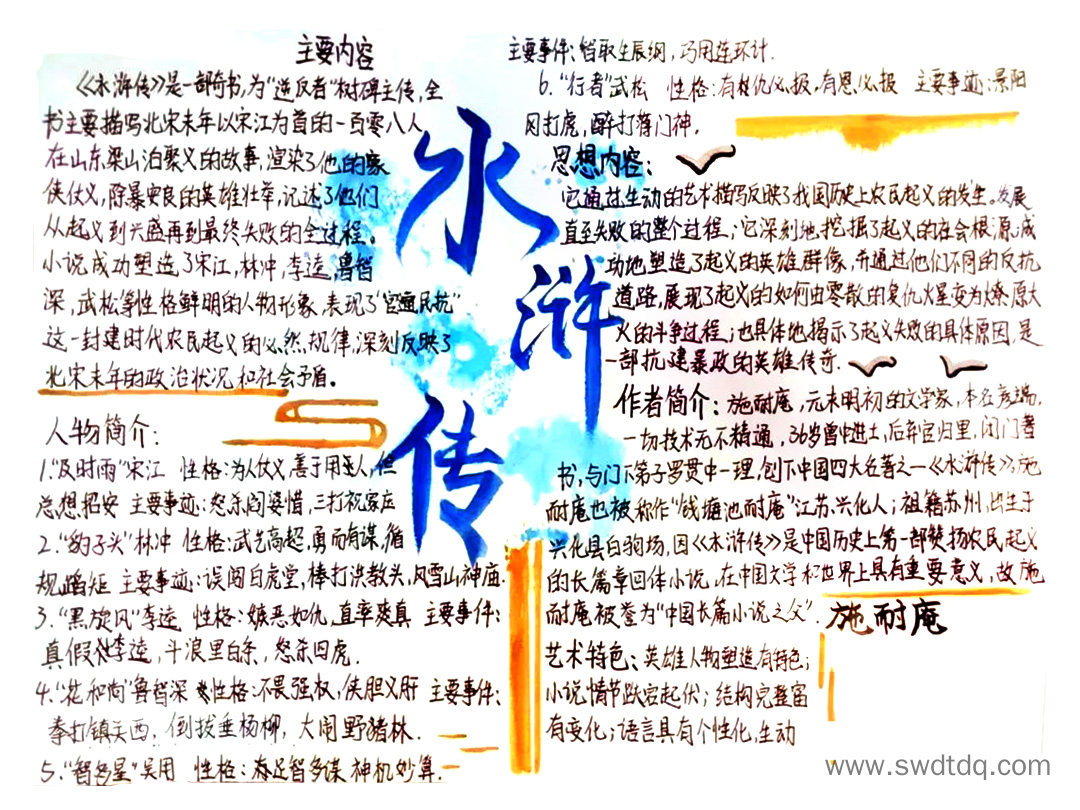 主要内容
《水浒传》是一部奇书,为“逆反者”树碑主传,全
书主要描写北宋末年以宋江为首的一百零八人
在山东梁山泊聚义的故事,渲染了他的豪
侠仗义,除暴安良的英雄壮举,记述了他们
从起义到兴盛再到最终失败的全过程。
小说成功塑造了宋江,林冲,李逵,鲁智
深,武松等性格鲜明的人物形象,表现了“官逼民抗”
这一封建时代农民起义的必然规律,深刻反映了
北宋末年的政治状况和社会矛盾。
人物简介:
1.“及时雨”宋江 性格:为人仗义,善于用人,但
总想招安 主要事迹:怒杀阎婆惜,三打祝家庄
2.“豹子头”林冲 性格:武艺高超,勇而有谋,循
规蹈矩 主要事迹:误闯白虎堂,棒打洪教头,风雪山神庙.
3.“黑旋风”李逵 性格:嫉恶如仇,直率爽真 主要事件:
真假李逵,斗浪里白条,怒杀四虎.
4.“花和尚”鲁智深 性格:不畏强权,侠胆义肝 主要事件:
拳打镇关西,倒拔垂杨柳,大闹野猪林.
5.“智多星”吴用 性格:足智多谋 神机妙算.
主要事件:智取生辰纲,巧用连环计.
6.“行者”武松 性格:有仇必报,有恩必报 主要事迹:景阳
冈打虎,醉打蒋门神.
思想内容:
它通过生动的艺术描写反映了我国历史上农民起义的发生。发展
直至失败的整个过程;它深刻地挖掘了起义的社会根源;成
功地塑造了起义的英雄群像,并通过他们不同的反抗
道路,展现了起义的如何由零散的复仇火星变为燎原大
火的斗争过程;也具体地揭示了起义失败的具体原因,是
一部抗建暴政的英雄传奇.
作者简介:施耐庵,元末明初的文学家,本名彦端,
一切技术无不精通,36岁曾中进士,后弃官归里,闭门著
书,与门下弟子罗贯中一理,创下中国四大名著之一《水浒传》,施
耐庵也被称作“钱塘池耐庵”江苏,兴化人;祖籍苏州,出生于
兴化县白驹场,因《水浒传》是中国历史上第一部赞扬农民起义
的长篇章回体小说,在中国文学和世界上具有重要意义,故施
耐庵被誉为“中国长篇小说之父”.
施耐庵
艺术特色、英雄人物塑造有特色;
小说情节跌宕起伏;结构完整富
有变化;语言具有个性化,生动
水
浒
传
www.swdtdq.com